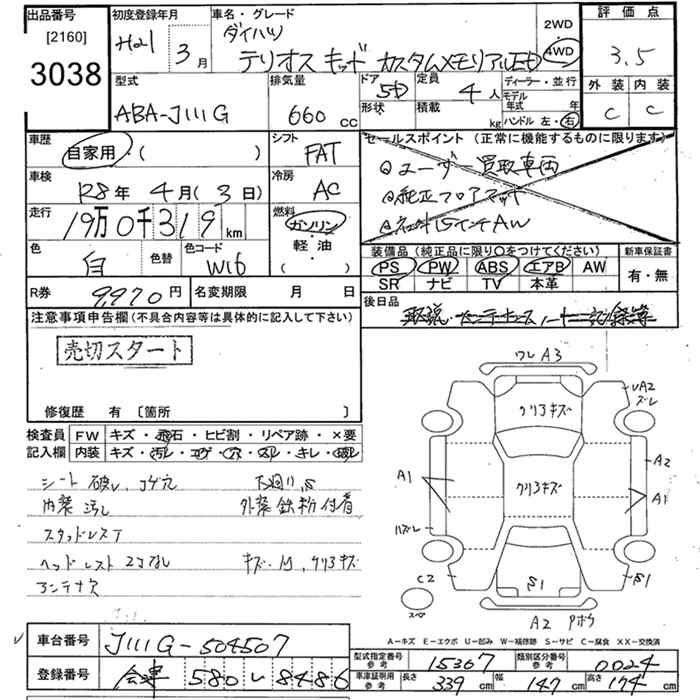 出品番号
[2160]
3038
初度登録年月
H21 3月
車名・グレード
ダイハツ
テリオスキッド カスタムXメモリアルED
2WD
4WD
評価点
3.5
外装 内装
C C
型式
ABA-J111G
排気量
660 cc
ドア
5D
形状
定員
4人
積載
kg
ディーラー・並行
モデル年式 年
ハンドル 左・右
車歴
自家用・( )
シフト
FAT
車検
R8年 4月(3日)
冷房
AC
走行
19万0千319km
燃料
ガソリン
軽油
( )
色
白
色替
色コード
W16
R券
9,970円
名変期限 月 日
セールスポイント(正常に機能するものに限ります)
ユーザー買取車両
純正フロアマット
社外15インチAW
装備品(純正品に限り○をつけてください)
PS PW ABS エアB AW
SR ナビ TV 本革
新車保証書
有・無
後日品
取説・メンテナンスノート・記録簿
注意事項申告欄(不具合内容等は具体的に記入して下さい)
売切スタート
修復歴 有 [箇所 ]
検査員記入欄
FW キズ・飛石・ヒビ割・リペア跡・×要
内装 キズ・汚レ・コゲ・穴・スレ・キレ・破レ
シート破レ、コゲ穴
内装汚レ
スタッドレス
ヘッドレスト2コなし
アンテナ欠
下廻りS
外装鉄粉付着
キズ・凹、クリ3キズ
ワレ A3
クリ3キズ
UA2
ズレ
A2
クリ3キズ
A1
A1
ハズレ
C2
S1
S1
スペア
A2
A-キズ E-エクボ U-凹み W-補修跡 S-サビ C-腐食 XX-交換済
車台番号
J111G-504507
登録番号
580 8486
型式指定番号
参考
15367
類別区分番号
参考
0024
車庫証明用
参考
長さ 339cm 幅 147cm 高さ 174cm